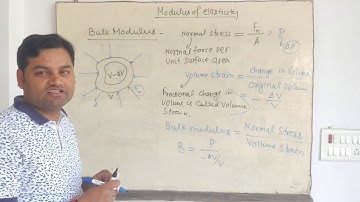 Modulus of elasticity
Bulk Modulus -
Normal stress = Fn/A = P
ΔP
Normal force per
Unit surface area
V-ΔV
Fn
Volume strain = Change in Volume / Original Volume
= -ΔV/V
Fractional change in
Volume is called Volume
Strain.
Bulk modulus = Normal Stress / Volume Strain
B = P / -ΔV/V